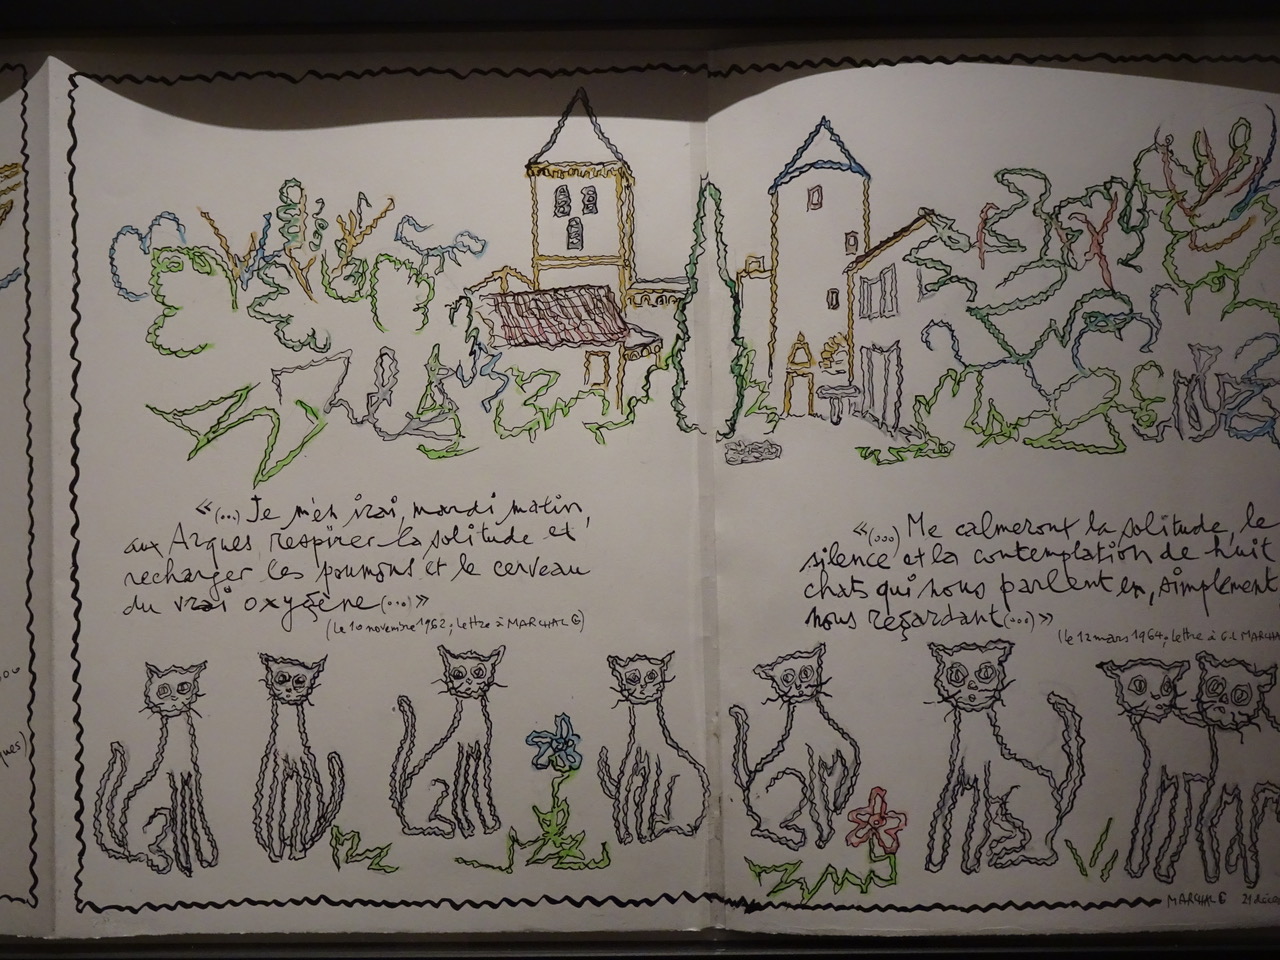 «(...) Je m'en irai, mardi matin,
aux Arques, respirer la solitude et
recharger les poumons et le cerveau
du vrai oxygène (...)»
(le 10 novembre 1962; lettre à MARCHAL G)
«(...) Me calmeront la solitude, le
silence et la contemplation de huit
chats qui nous parlent en, simplement
nous regardant (...)»
(le 12 mars 1964; lettre à G.L MARCHA
ques)
MARCHAL G 21